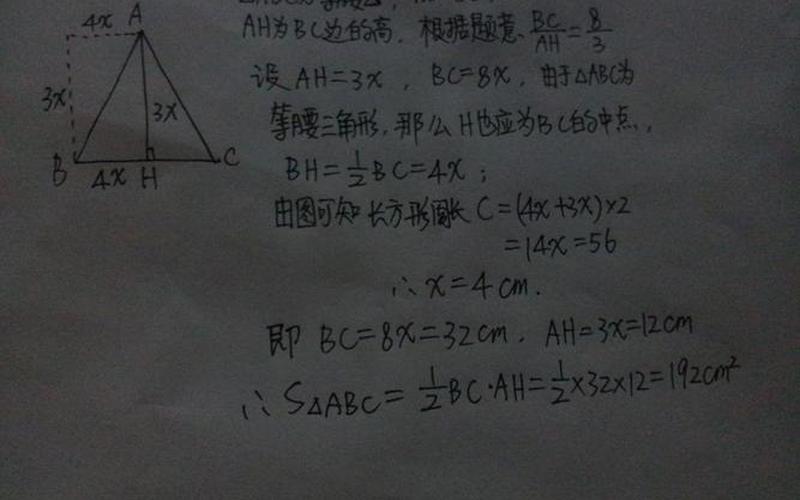 AH为BC边的高. 根据题意 BC/AH=8/3
设 AH=3x , BC=8x, 由于△ABC为
等腰三角形, 那么 H也应为BC的中点,
BH=1/2BC=4x ;
由图可知 长方形周长 C=(4x+3x)×2
=14x=56
∴ x=4cm.
即 BC=8x=32cm. AH=3x=12cm
∴ S△ABC=1/2BC·AH=1/2×32×12=192cm²
4x A
3x
3x
B 4x H C